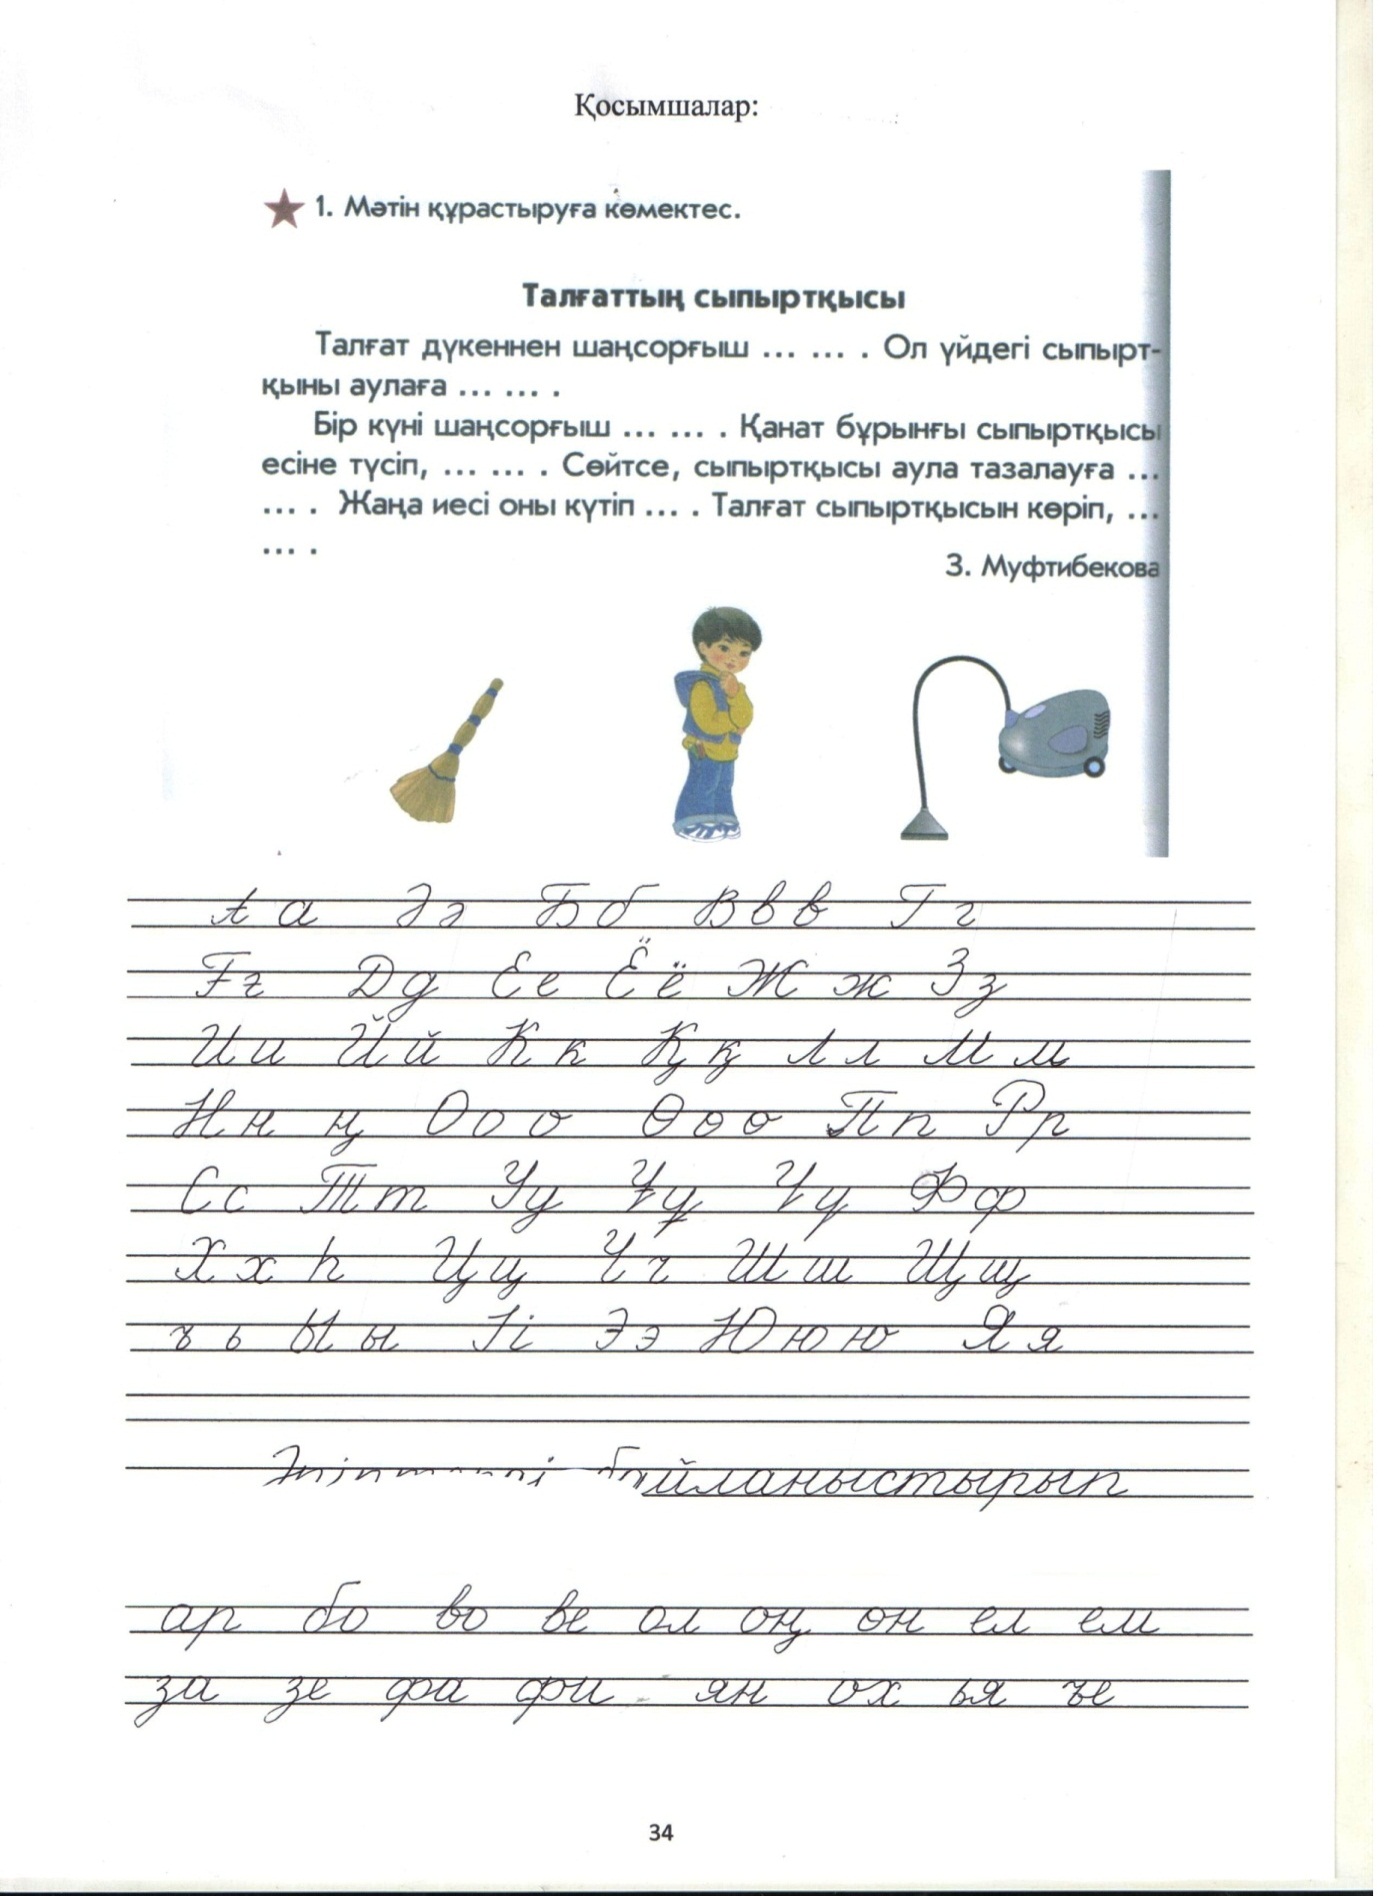 Қосымшалар:
1. Мәтін құрастыруға көмектес.
Талғаттың сыпыртқысы
Талғат дүкеннен шаңсорғыш ... ... . Ол үйдегі сыпырт-
қыны аулаға ... ... .
Бір күні шаңсорғыш ... ... . Қанат бұрынғы сыпыртқысы
есіне түсіп, ... ... . Сөйтсе, сыпыртқысы аула тазалауға ...
... . Жаңа иесі оны күтіп ... . Талғат сыпыртқысын көріп, ...
... .
З. Муфтибекова
А а Ә ә Б б В в в Г г
Ғ ғ Д д Е е Ё ё Ж ж З з
И и Й й К к Қ қ Л л М м
Н н ң О о о Ө ө ө П п Р р
С с Т т У у Ұ ұ Ү ү Ф ф
Х х һ Ц ц Ч ч Ш ш Щ щ
ъ ь Ы ы І і Э э Ю ю ю Я я
байланыстырып
ар бо во ве ол оң он ел ем
за зе фа фи ян ох ья ъе
34